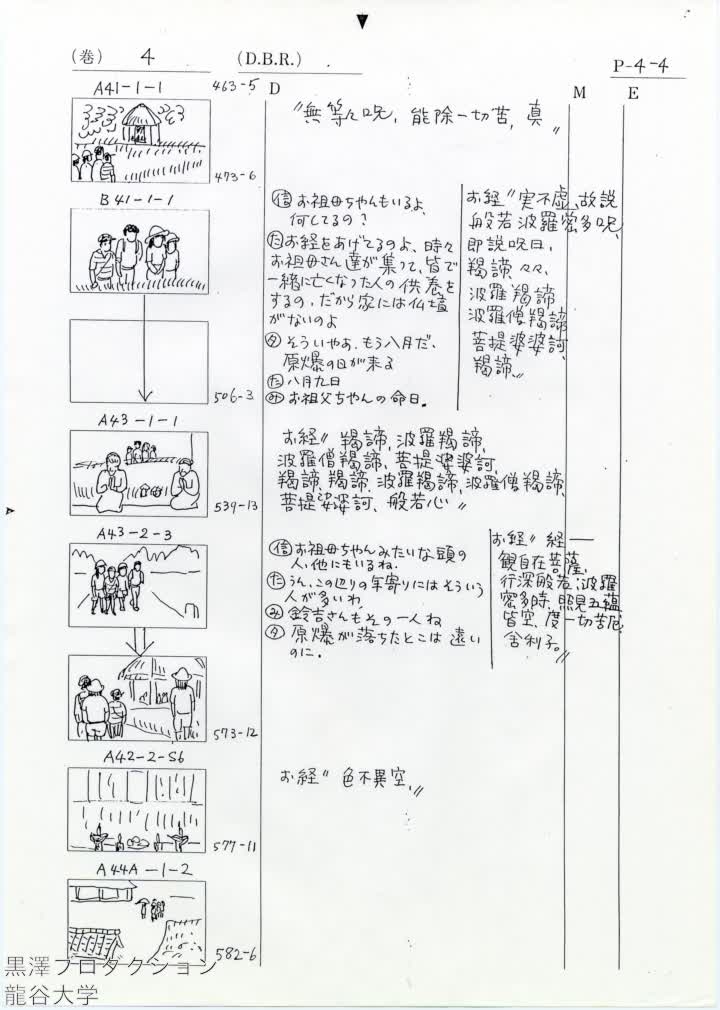 (巻) 4 (D.B.R.) P-4-4
D M E
A41-1-1 463-5
〃無等々呪, 能除一切苦, 真〃
473-6
B41-1-1
信 お祖母ちゃんもいるよ、
何してるの？
た お経をあげてるのよ、時々
お祖母さん達が集って、皆で
一緒に亡くなった人の供養を
するの，だから家には仏壇
がないのよ
タ そういやあ、もう八月だ、
原爆の日が来る
た 八月九日
み お祖父ちゃんの命日．
お経〃実不虚、故説
般若波羅密多呪、
即説呪曰、
羯諦々々、
波羅羯諦
波羅僧羯諦
菩提婆婆訶、
羯諦、〃
506-3
A43-1-1
お経〃 羯諦，波羅羯諦，
波羅僧羯諦、菩提婆婆訶、
羯諦、羯諦、波羅羯諦、波羅僧羯諦、
菩提婆婆訶、般若心〃
539-13
A43-2-3
信 お祖母ちゃんみたいな頭の
人、他にもいるね．
た うん、この辺りの年寄りにはそういう
人が多いわ，
み 鈴吉さんもその一人ね
タ 原爆が落ちたとこは 遠い
のに．
お経〃 経——
観自在菩薩、
行深般若；波羅
密多時、照見五蘊
皆空、度一切苦厄、
舎利子。〃
573-12
A42-2-S6
お経〃 色不異空、〃
577-11
A44A-1-2
582-6
黒澤プロダクション
龍谷大学